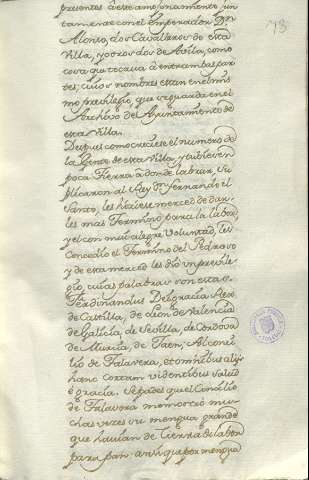 presentes à este amojonamiento, jun
tamente con el Emperador Dn
Alonso, dos Cavalleros de esta
Villa, y otros dos de Avila, como
cosa que tocava à entrambas par
tes; cuios nombres estan en el mis
mo previlegio, que se guarda en el
Archivo del Ayuntamiento de
esta Villa.
Despues como creciese el numero de
la Gente de esta Villa, y tubiesen
poca Tierra adonde labrar, Su
plicaron al Rey Dn Fernando el
Santo, les hiciese merced de dar
les mas Termino para la labor,
y el con mui alegre Voluntad, les
Concedio el Termino del Pedroso
y de esta merced les dio un previle
gio, cuias palabras son estas.
Ferdinandus Dei gracia Rex
de Castilla, de Leon, de Valencia
de Galicia, de Sevilla, de Cordova
de Murcia, de Jaen, Al Conci
lio de Talavera, et omnibus
hanc cartam videntibus salud
è gracia. Sepades que el Concilio
de Talavera me mostrò mu
chas veces su mengua grande
que havian de tierra de labor
para pan. por mengua
73